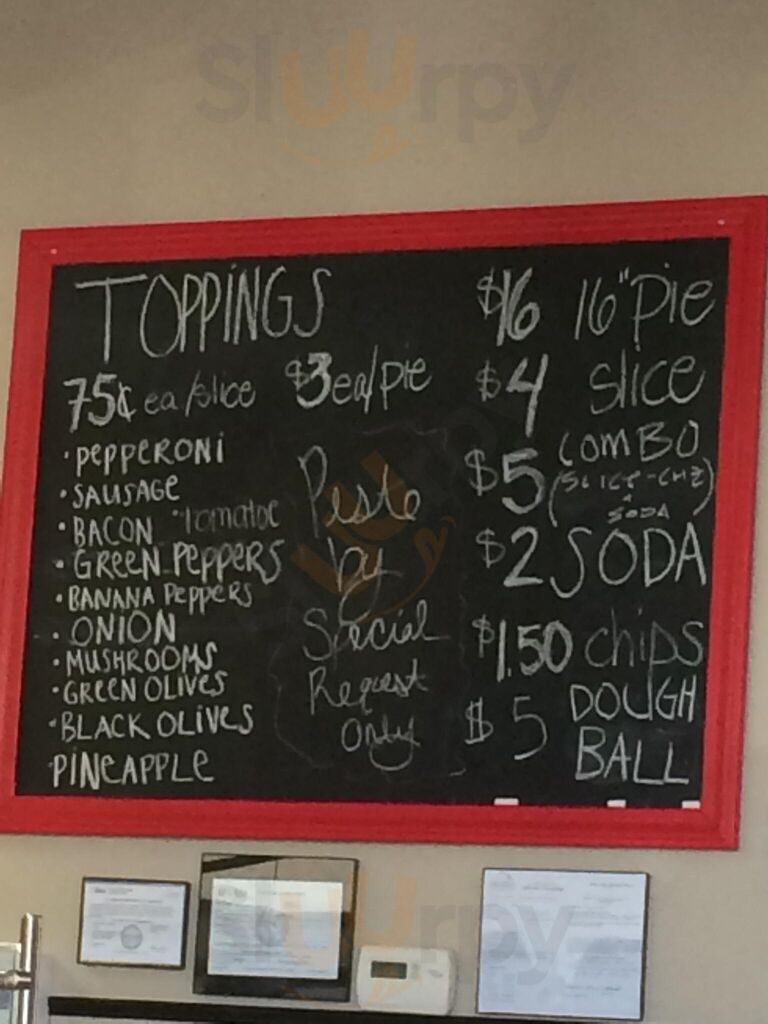 Sluurpy
TOPPINGS
75¢ ea/slice $3 ea/pie
• PEPPERONI
• SAUSAGE
• BACON • Tomatoe
• GREEN PEPPERS
• BANANA PEPPERS
• ONION
• MUSHROOMS
• GREEN OLIVES
• BLACK OLIVES
PINEAPPLE
Pesto
by
Special
Request
Only
$16 16" Pie
$4 slice
$5 COMBO
(SLICE-CHZ
+
SODA)
$2 SODA
$1.50 chips
$5 DOUGH
BALL